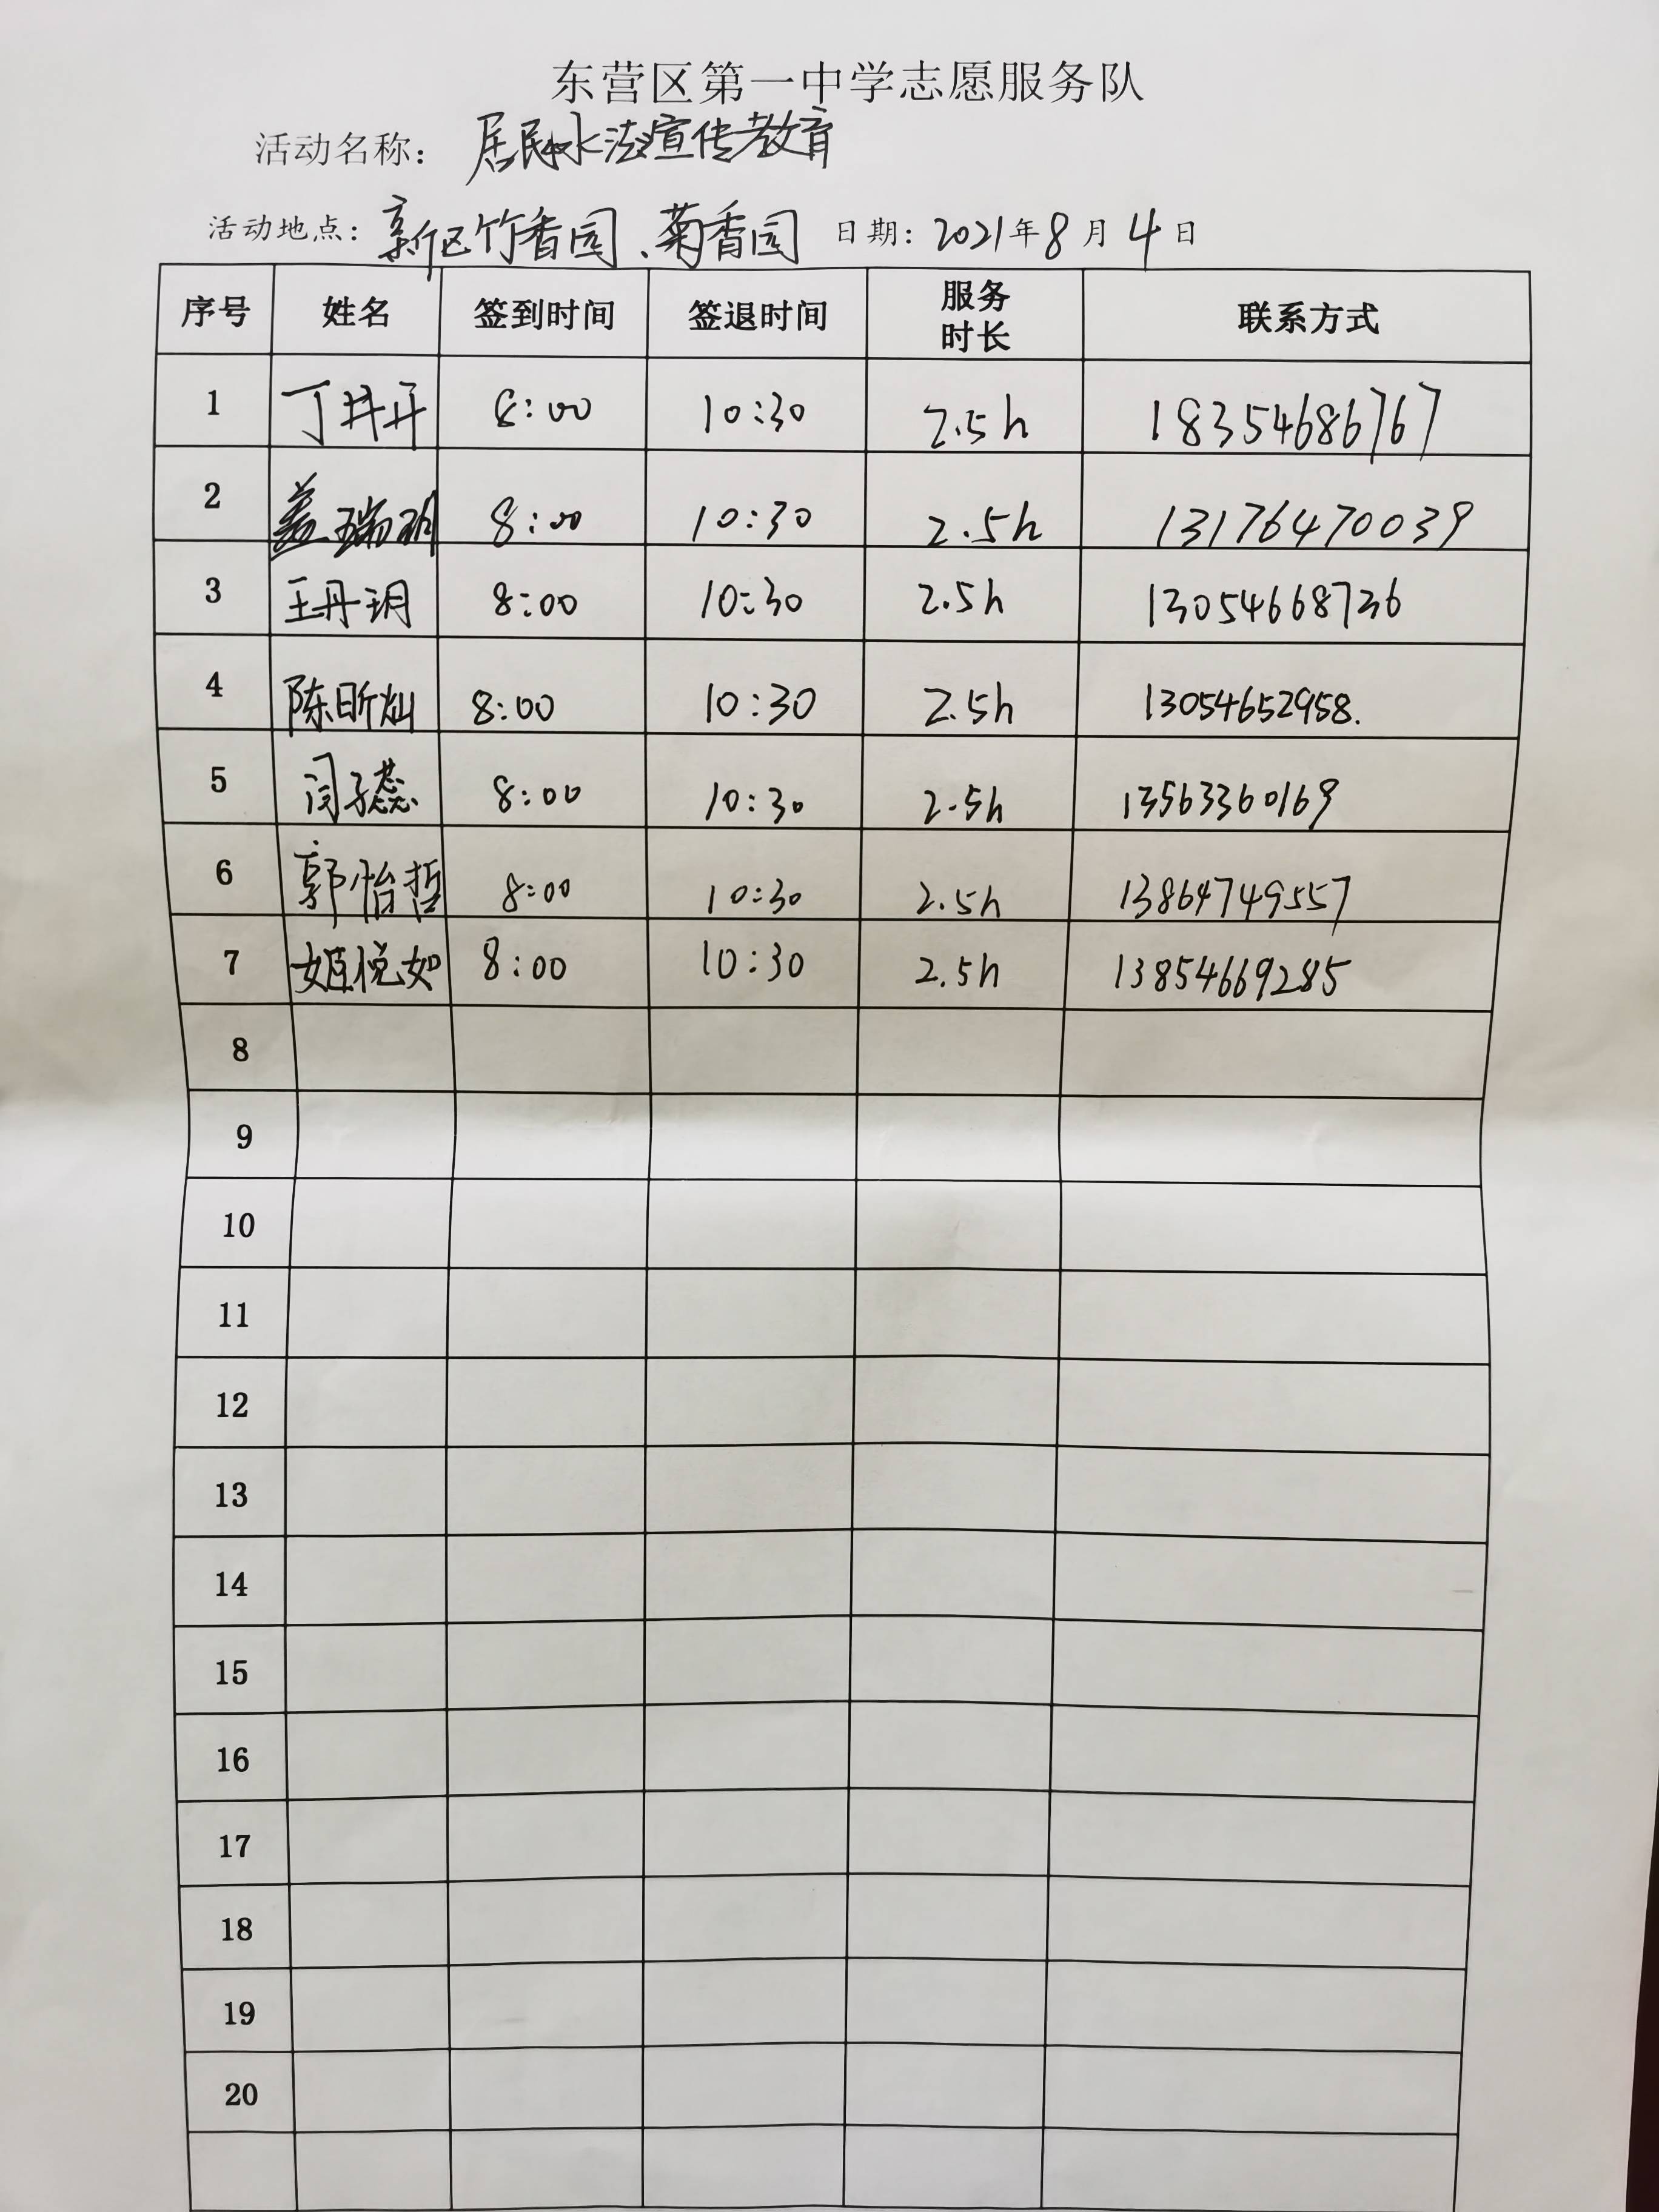 东营区第一中学志愿服务队
活动名称： 居民水法宣传教育
活动地点： 新区竹香园、菊香园 日期：2021年8月4日
序号 姓名 签到时间 签退时间 服务时长 联系方式
1 丁 8:00 10:30 2.5h 18354686767
2 盖瑞玥 8:00 10:30 2.5h 13176470039
3 王丹玥 8:00 10:30 2.5h 13054668736
4 陈昕灿 8:00 10:30 2.5h 13054652958.
5 闫子蕊 8:00 10:30 2.5h 13563360169
6 郭怡哲 8:00 10:30 2.5h 13864749557
7 姬悦如 8:00 10:30 2.5h 13854669285
8
9
10
11
12
13
14
15
16
17
18
19
20